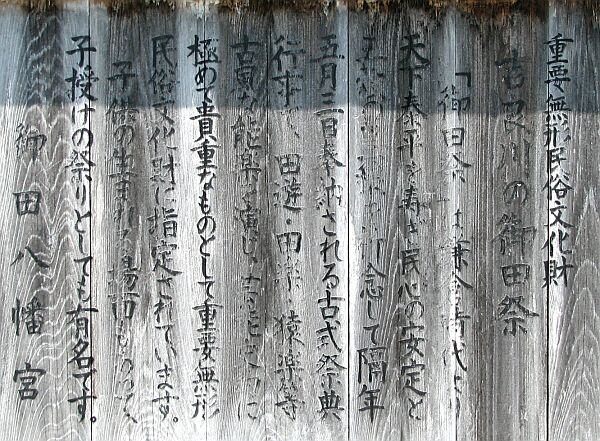 重要無形民俗文化財
吉良川の御田祭
「御田祭」は鎌倉時代より
天下泰平を寿ぎ民心の安定と
五穀 を祈念して隔年
五月三日奉納される古式祭典
行事で、田遊・田楽・猿楽等
古風な能楽を演じ、
極めて貴重なものとして重要無形
民俗文化財に指定されています。
子供の生まれる場面もあって、
子授けの祭りとしても有名です。
御田八幡宮